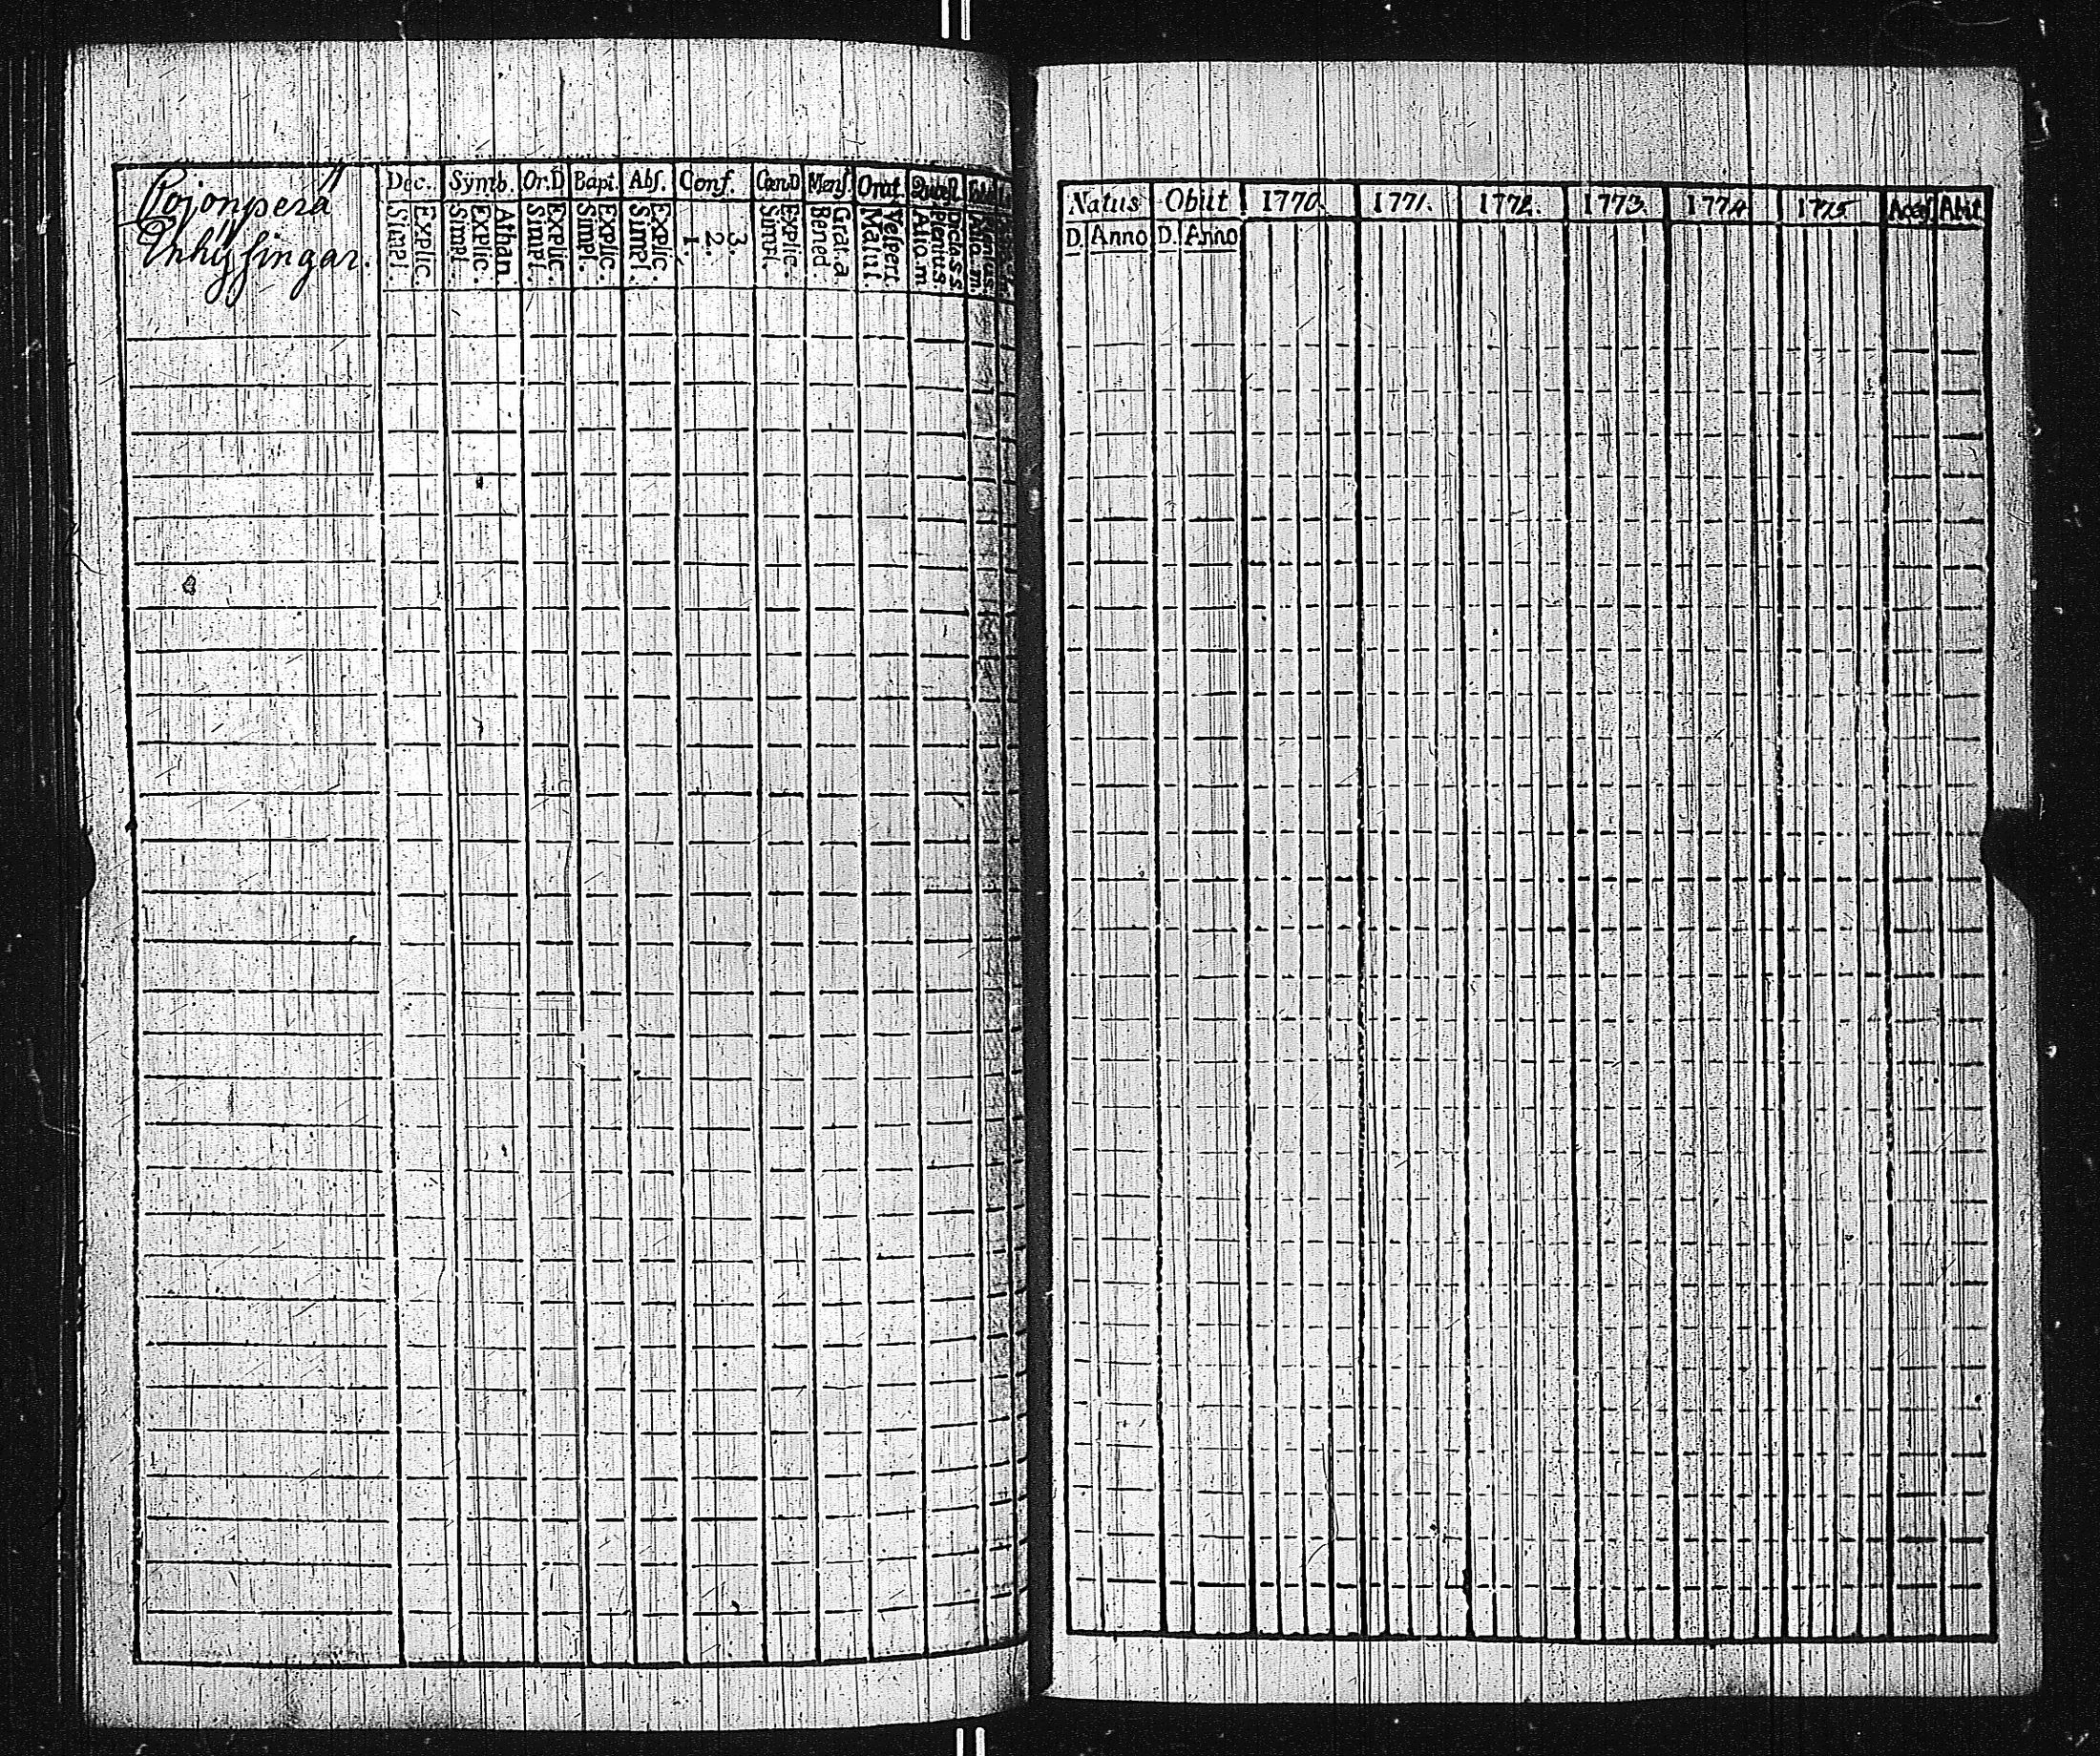 Pojonperä
Inhysingar.
Dec. Symb. Or.D Bapt. Abs. Conf. Cœn.D Mens. Orat. Quæst.
Simpl. Explic. Simpl. Explic. Athan. Simpl. Explic. Simpl. Explic. Simpl. Explic. 1. 2. 3. Simpl. Explic. Bened. Grat. a. Matut. Vespert. Alio.m Plenius.
Natus Obiit 1770. 1771. 1772. 1773. 1774 1775 Acces Abit
D. Anno D. Anno